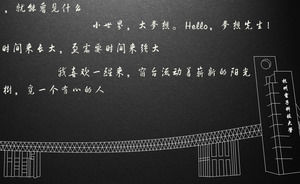 ，就能看见什么
小世界，大梦想。Hello，梦想先生！
时间来长大，还需要时间来强大
我喜欢一醒来，窗台流动着崭新的阳光
树，览一个有心的人
杭州电子科技大学